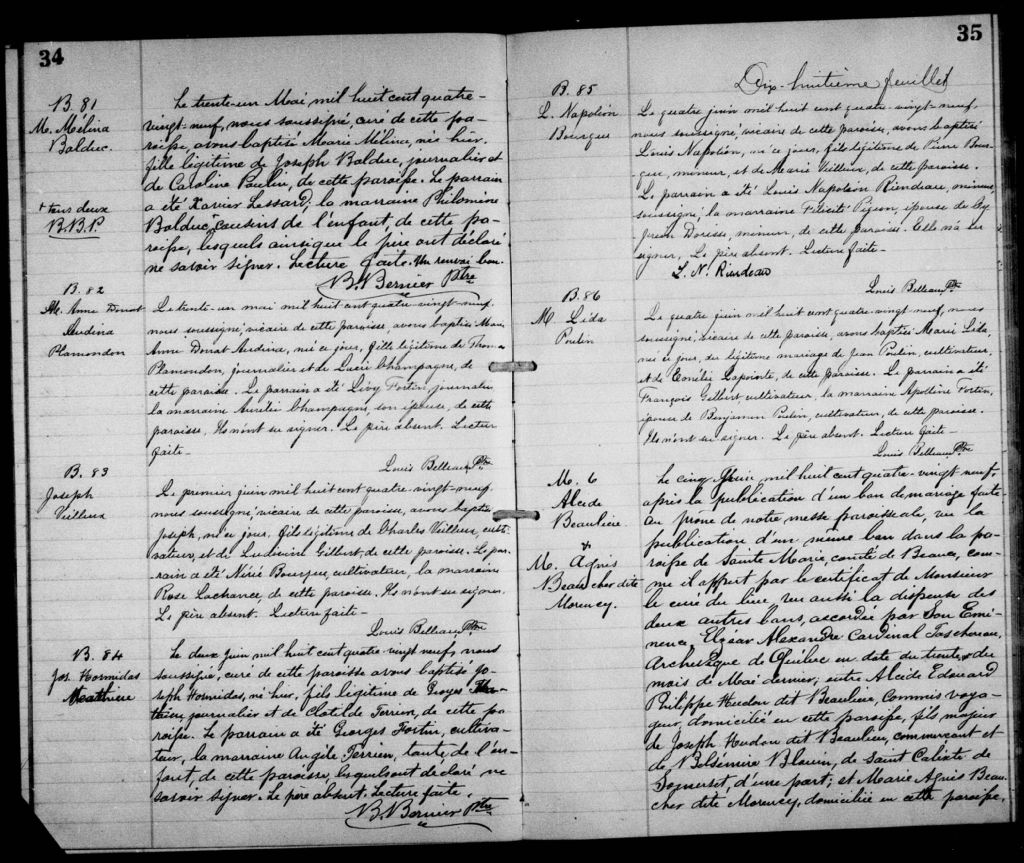 34
B. 81
M. Mélina
Balduc.
+ tous deux
B.B.P.
Le trente-un Mai mil huit cent quatre-
vingt-neuf, nous soussigné, curé de cette pa-
roisse, avons baptisé Marie Mélina, née hier,
fille légitime de Joseph Balduc, journalier et
de Caroline Poulin, de cette paroisse. Le parrain
a été Xavier Lessard; la marraine Philomène
Balduc, + cousins de l'enfant, de cette pa-
roisse, lesquels ainsi que le père ont déclaré
ne savoir signer. Lecture faite. Un renvoi bon.
B. Bernier Ptre
B. 82
M. Anne Donat
Audina
Plamondon
Le trente-un mai mil huit cent quatre-vingt-neuf,
nous soussigné, vicaire de cette paroisse, avons baptisé Marie
Anne Donat Audina, née ce jour, fille légitime de Thomas
Plamondon, journalier et de Lucie Champagne, de
cette paroisse. Le parrain a été Lévy Fortin, journalier
la marraine Aurélie Champagne, son épouse, de cette
paroisse. Ils n'ont su signer. Le père absent. Lecture
faite-
Louis Belleau Ptre
B. 83
Joseph
Veilleux
Le premier juin mil huit cent quatre-vingt-neuf,
nous soussigné, vicaire de cette paroisse, avons baptisé
Joseph, né ce jour, fils légitime de Charles Veilleux, culti-
vateur, et de Ludivine Gilbert, de cette paroisse. Le par-
rain a été Nérée Bourque, cultivateur, la marraine
Rose Lachance, de cette paroisse. Ils n'ont su signer.
Le père absent. Lecture faite-
Louis Belleau Ptre
B. 84
Jos. Hormidas
Mathieu
Le deux juin mil huit cent quatre vingt neuf, nous
soussigné, curé de cette paroisse avons baptisé Jo-
seph Hormidas, né hier, fils légitime de Georges Ma-
thieu, journalier et de Clotilde Terrien, de cette pa-
roisse. Le parrain a été Georges Fortin, cultiva-
teur, la marraine Angèle Terrien, tante de l'en-
fant, de cette paroisse, lesquels ont déclaré ne
savoir signer. Le père absent. Lecture faite.
B. Bernier Ptre
35
Dix-huitième feuillet
B. 85
L. Napoléon
Bourque
Le quatre juin mil huit cent quatre-vingt-neuf,
nous soussigné, vicaire de cette paroisse, avons baptisé
Louis Napoléon, né ce jour, fils légitime de Pierre Bour-
que, mineur, et de Marie Veilleux, de cette paroisse.
Le parrain a été Louis Napoléon Riendeau, mineur
soussigné, la marraine Félicité Pigeon, épouse de Cy-
prien Dorisse, mineur, de cette paroisse. Elle n'a su
signer. Le père absent. Lecture faite-
L. N. Riendeau
Louis Belleau Ptre
B. 86
M. Lida
Poulin
Le quatre juin mil huit cent quatre-vingt-neuf, nous
soussigné, vicaire de cette paroisse, avons baptisé Marie Lida,
née ce jour, du légitime mariage de Jean Poulin, cultivateur,
et de Emélie Lapointe, de cette paroisse. Le parrain a été
François Gilbert cultivateur, la marraine Apolline Fortin,
épouse de Benjamin Poulin, cultivateur, de cette paroisse.
Ils n'ont su signer. Le père absent. Lecture faite-
Louis Belleau Ptre
M. 6
Alcide
Beaulieu.
&
M. Agnès
Beaucher dite
Morency.
Le cinq Juin mil huit cent quatre-vingt-neuf,
après la publication d'un ban de mariage faite
au prône de notre messe paroissiale, vu la
publication d'un même ban dans la pa-
roisse de Sainte Marie, comté de Beauce, com-
me il appert par le certificat de Monsieur
le curé du lieu vu aussi la dispense des
deux autres bans, accordée par Son Emi-
nence Elzéar Alexandre Cardinal Taschereau,
Archevêque de Québec en date du trente du
mois de Mai dernier; entre Alcide Edouard
Philippe Hudon dit Beaulieu, Commis voya-
geur, domicilié en cette paroisse, fils majeur
de Joseph Hudon dit Beaulieu, commerçant et
de Belsémire Blouin, de Saint Calixte de
Somerset, d'une part; et Marie Agnès Beau-
cher dite Morency, domiciliée en cette paroisse,